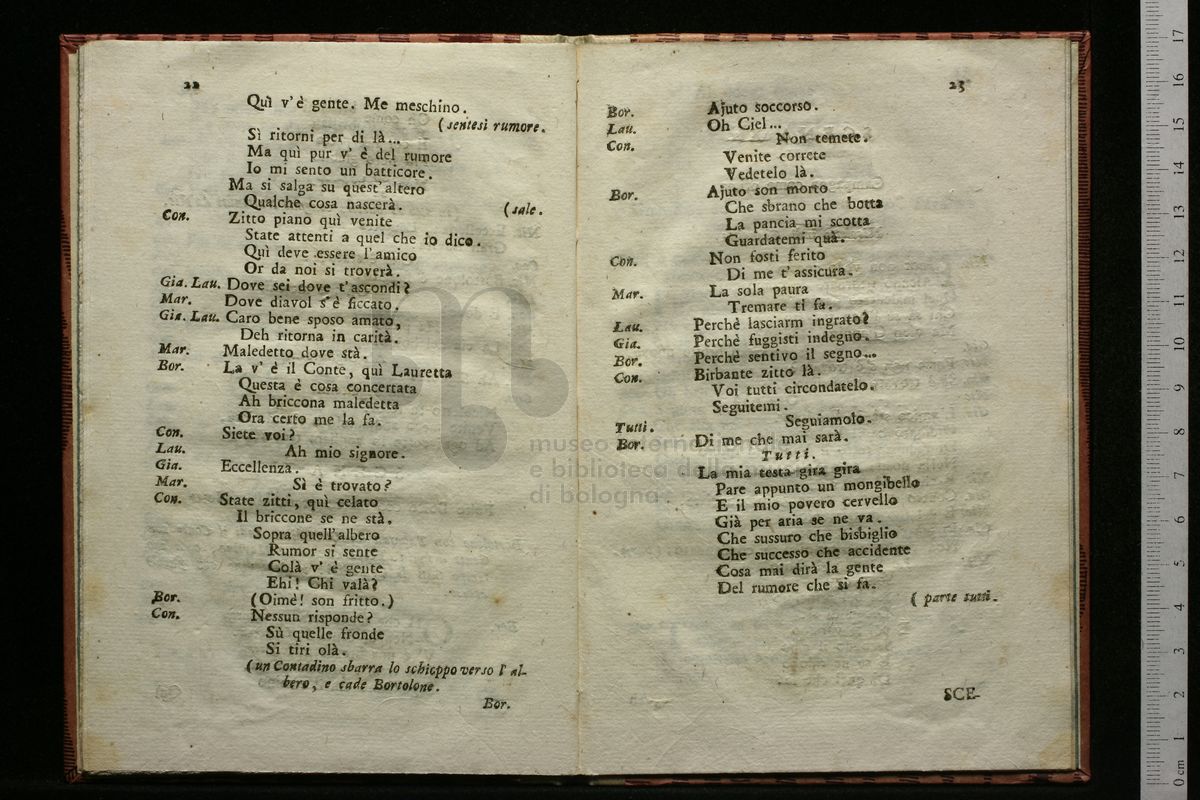 22
Quì v'è gente. Me meschino.
(sentesi rumore.
Sì ritorni per di là...
Ma quì pur v' è del rumore
Io mi sento un batticore.
Ma si salga su quest'altero
Qualche cosa nascerà. (sale.
Con. Zitto piano quì venite
State attenti a quel che io dico.
Quì deve essere l'amico
Or da noi si troverà.
Gia. Lau. Dove sei dove t'ascondi?
Mar. Dove diavol s'è ficcato.
Gia. Lau. Caro bene sposo amato,
Deh ritorna in carità.
Mar. Maledetto dove stà.
Bor. La v' è il Conte, quì Lauretta
Questa è cosa concertata
Ah briccona maledetta
Ora certo me la fa.
Con. Siete voi?
Lau. Ah mio signore.
Gia. Eccellenza.
Mar. Sì è trovato?
Con. State zitti, quì celato
Il briccone se ne stà.
Sopra quell'albero
Rumor si sente
Colà v' è gente
Ehi! Chi valà?
Bor. (Oimè! son fritto.)
Con. Nessun risponde?
Sù quelle fronde
Si tiri olà.
(un Contadino sbarra lo schioppo verso l' al-
bero, e cade Bortolone.
Bor.
23
Bor. Ajuto soccorso.
Lau. Oh Ciel...
Con. Non temete.
Venite correte
Vedetelo là.
Bor. Ajuto son morto
Che sbrano che botta
La pancia mi scotta
Guardatemi quà.
Con. Non fosti ferito
Di me t'assicura.
Mar. La sola paura
Tremare ti fa.
Lau. Perchè lasciarm ingrato?
Gia. Perchè fuggisti indegno.
Bor. Perchè sentivo il segno...
Con. Birbante zitto là.
Voi tutti circondatelo.
Seguitemi.
Tutti. Seguiamolo.
Bor. Di me che mai sarà.
Tutti.
La mia testa gira gira
Pare appunto un mongibello
E il mio povero cervello
Già per aria se ne va.
Che sussuro che bisbiglio
Che successo che accidente
Cosa mai dirà la gente
Del rumore che si fa.
( parte tutti.
SCE-
museo internazionale
e biblioteca della
di bologna
0 cm 1 2 3 4 5 6 7 8 9 10 11 12 13 14 15 16 17